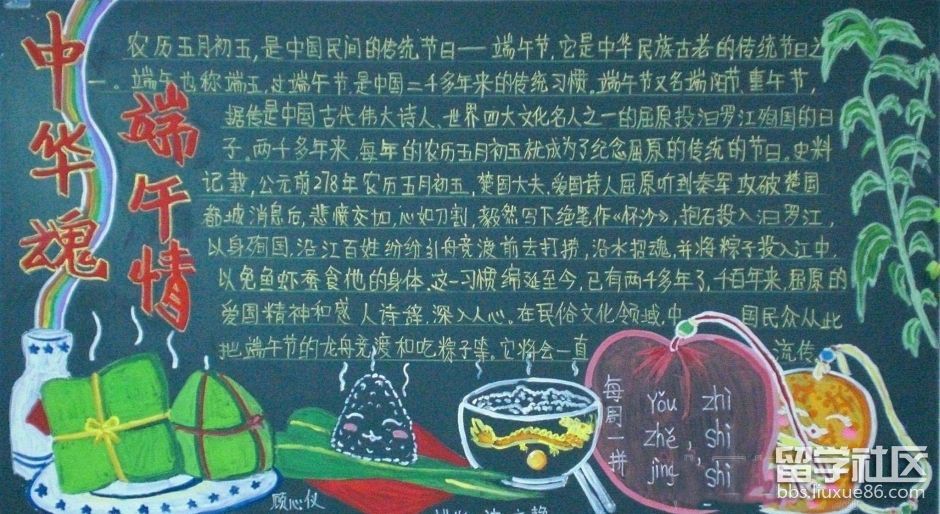 中华魂
端午情
农历五月初五,是中国民间的传统节日——端午节,它是中华民族古老的传统节日之
一。端午也称端五,过端午节,是中国二千多年来的传统习惯。端午节又名端阳节、重午节,
据传是中国古代伟大诗人、世界四大文化名人之一的屈原投汨罗江殉国的日
子。两千多年来,每年的农历五月初五就成为了纪念屈原的传统的节日。史料
记载,公元前278年农历五月初五,楚国大夫、爱国诗人屈原听到秦军攻破楚国
都城消息后,悲愤交加,心如刀割,毅然写下绝笔作《怀沙》,抱石投入汨罗江,
以身殉国,沿江百姓纷纷引舟竞渡前去打捞,沿水招魂,并将粽子投入江中,
以免鱼虾蚕食他的身体。这一习惯绵延至今,已有两千多年了,千百年来,屈原的
爱国精神和感人诗辞,深入人心。在民俗文化领域,中国民众从此
把端午节的龙舟竞渡和吃粽子等。它将会一直流传。
每周一拼
Yǒu zhì
zhě,shì
jìng,shì
顾心仪
留学社区
bbs.liuxue86.com